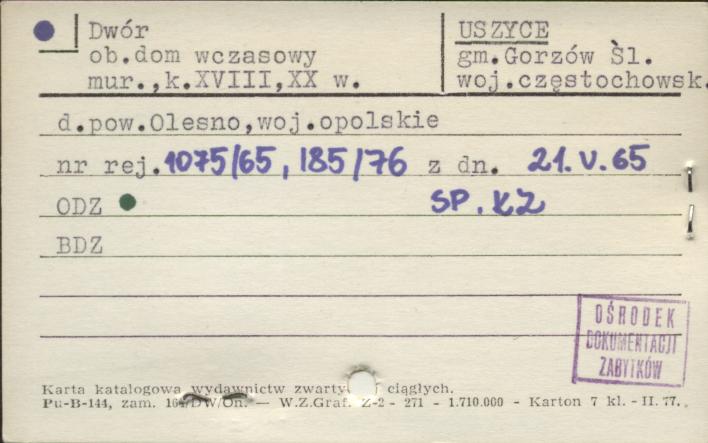 Dwór
ob.dom wczasowy
mur.,k.XVIII,XX w.
USZYCE
gm.Gorzów Śl.
woj.częstochowsk.
d.pow.Olesno,woj.opolskie
nr rej.1075/65, 185/76 z dn. 21.V.65
ODZ SP. KZ
BDZ
OŚRODEK
DOKUMENTACJI
ZABYTKÓW
Karta katalogowa wydawnictw zwarty ciągłych.
Pu-B-144, zam. 164/DW/On. — W.Z.Graf. Z-2 - 271 - 1.710.000 - Karton 7 kl. - II. 77.